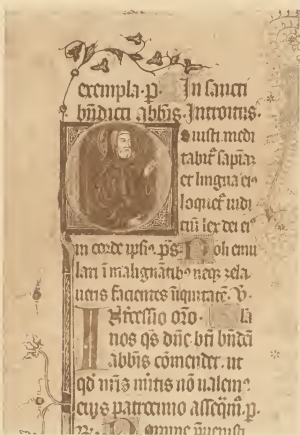 exempla·p· In sancti
bn̄dicti abb̄is Introitus·
Os iusti medi
tabit͛ sapiā⁊
et lingua ei⁹
loquet͛ iudi
ciū lex dei ei⁹
in corde ipsi⁹· p̄s· Noli emu
lari ī malignātib⁹ neq⁊ zela
ueris facientes īiquitatē· V·
INtercessio or̄o·
nos q̄s dn̄e bt̄i bn̄dc̄i
abb̄is cōmendet· ut
qd̄ nr̄is m̄itis nō ualem⁹
eius patrocinio asseq̄m̄· p·
Domine p̄uenisti